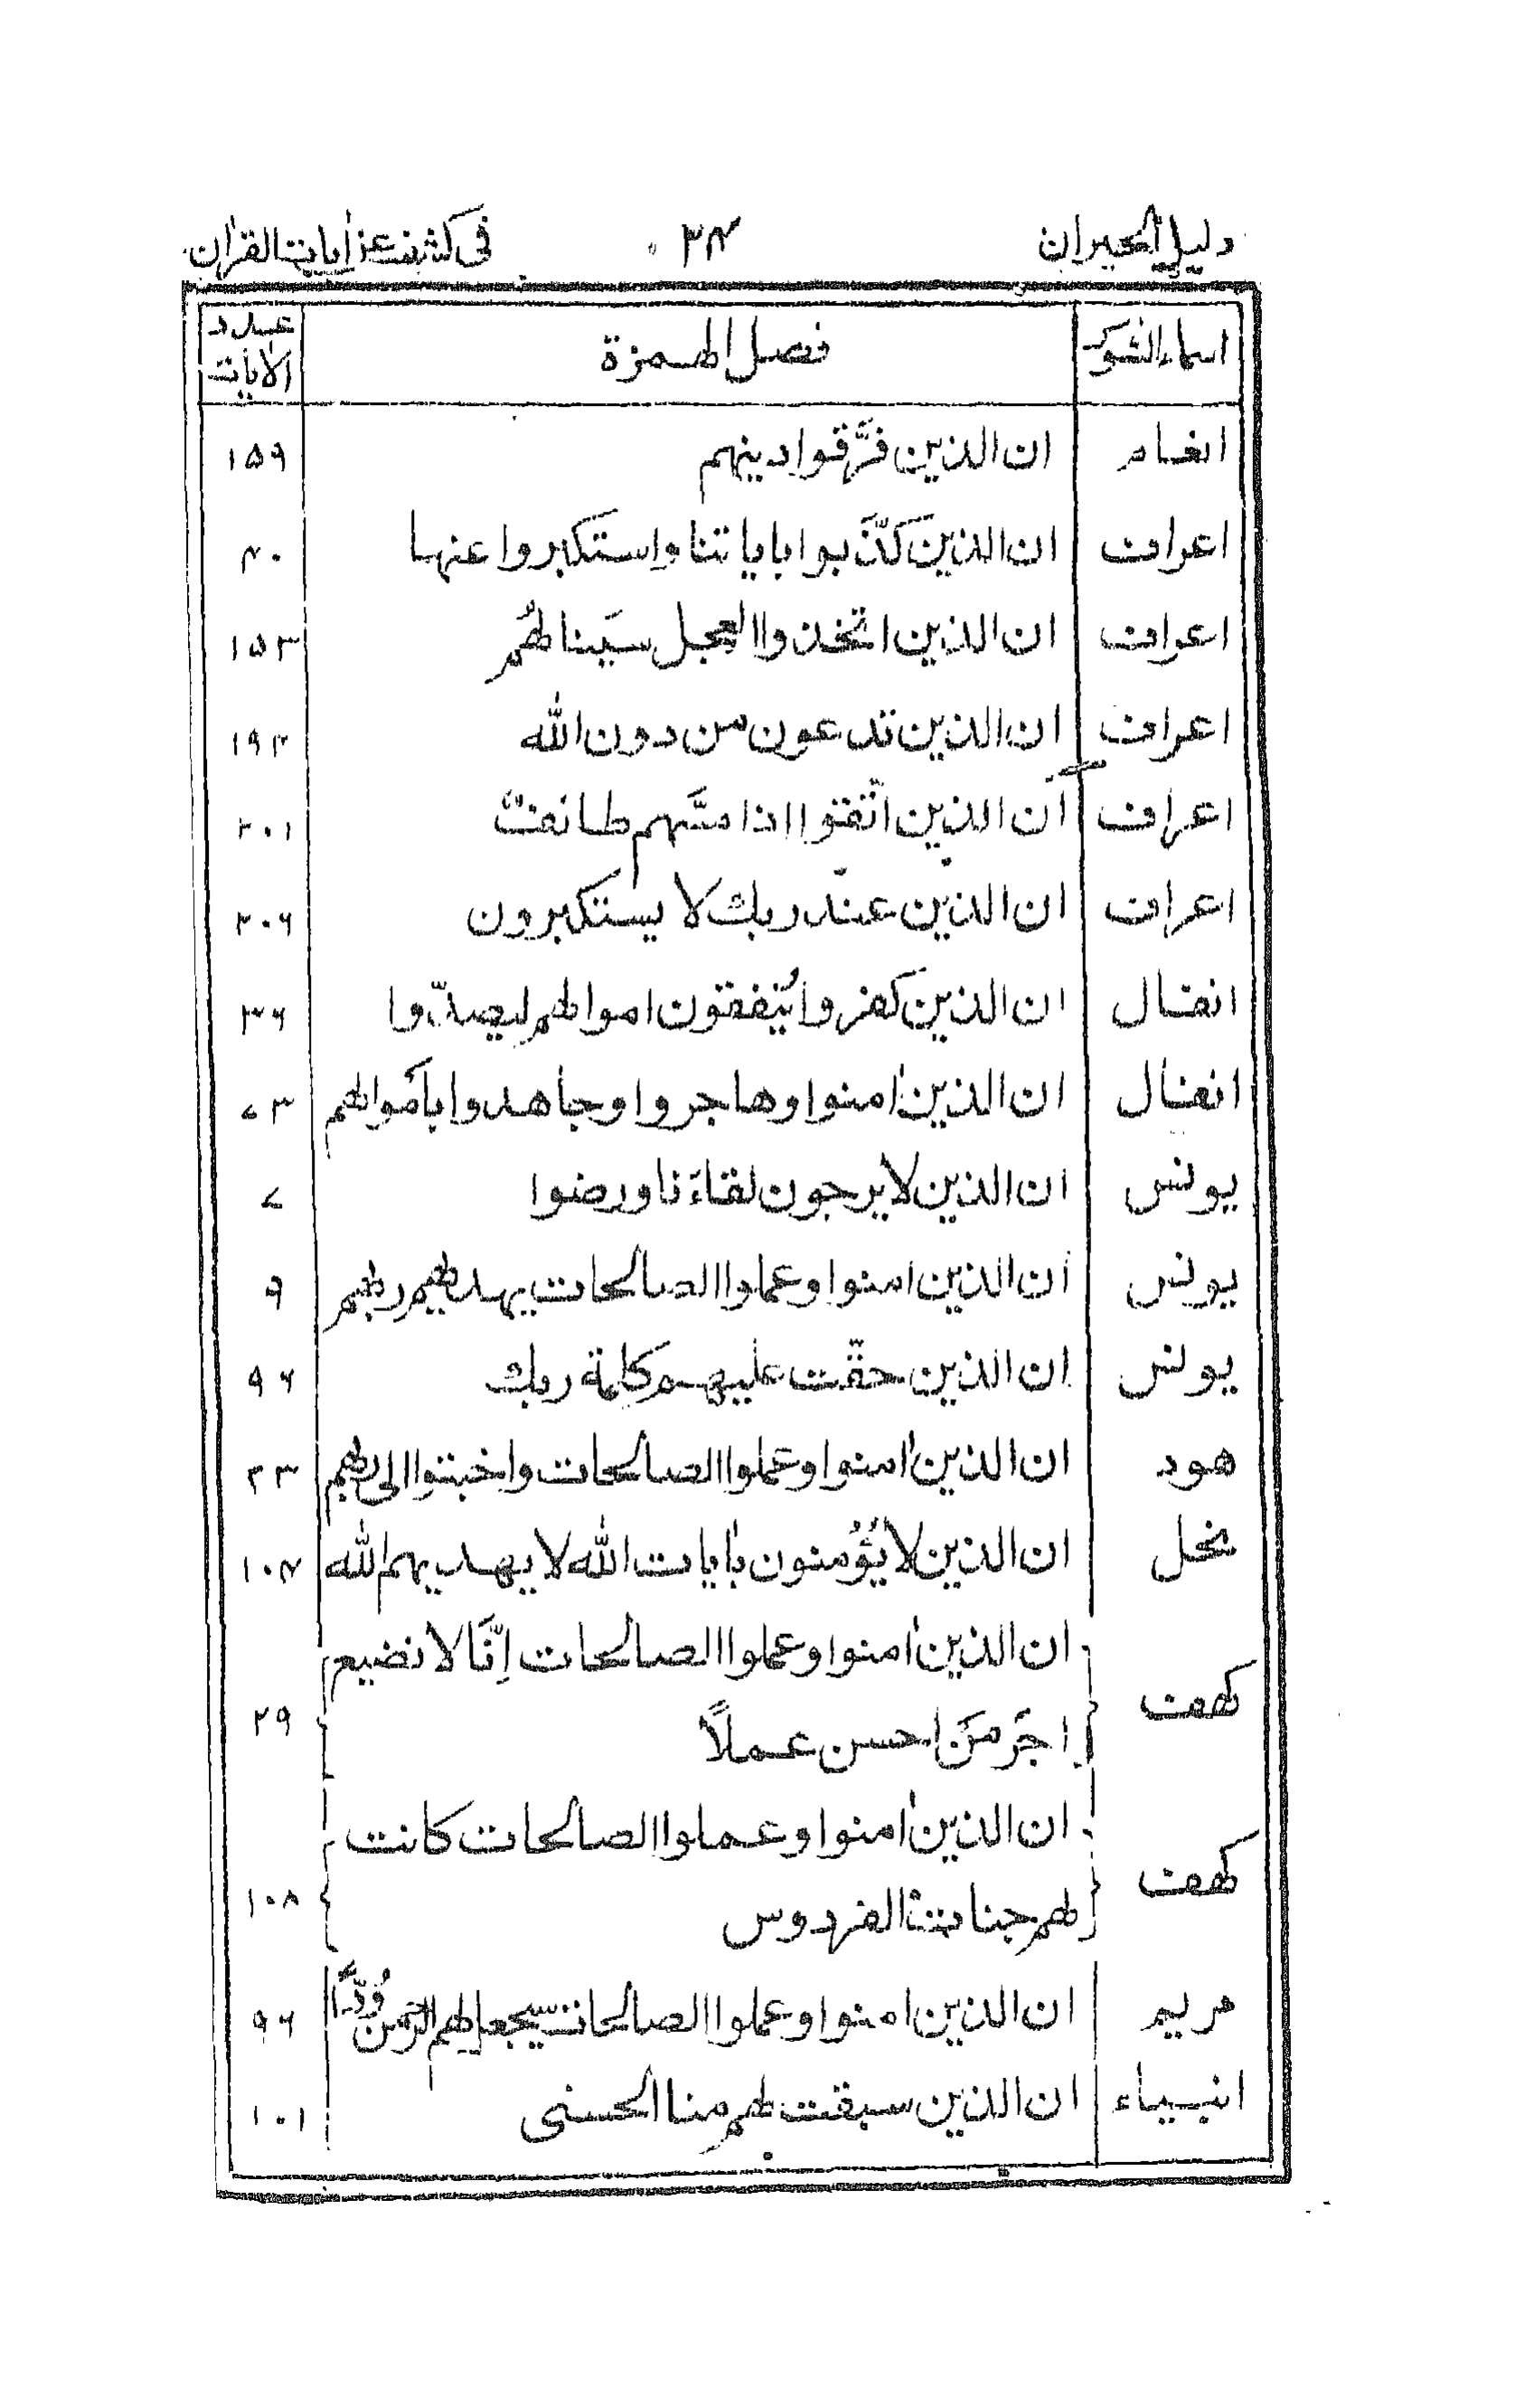 دليل الحيران ٣٤ في كشف عن اٰيات القراٰن
اسماء السور فصل الهمزة عدد الاٰيات
انعام ان الذين فرَّقوا دينهم ١٥٩
اعراف ان الذينَ كذَّبوا باياتنا واستكبروا عنها ٤٠
اعراف ان الذين اتخذوا العجل سيَنالهُم ١٥٣
اعراف ان الذين تدعون من دون الله ١٩٣
اعراف ان الذين اتّقوا اذا مسَّهم طائفٌ ٢٠١
اعراف ان الذين عند ربك لا يستكبرون ٢٠٦
انفال ان الذينَ كفروا يُنفقون اموالهم ليصدّوا ٣٦
انفال ان الذين اٰمنوا وهاجروا وجاهدوا باَموالهم ٧٣
يونس ان الذين لا يرجون لقاءَنا ورضوا ٧
يونس ان الذين امنوا وعملوا الصالحات يهديهم ربهم ٩
يونس ان الذين حقّت عليهم كلمة ربك ٩٦
هود ان الذين اٰمنوا وعملوا الصالحات واخبتوا الى ربهم ٢٣
نحل ان الذين لا يُؤمنون باٰيات الله لا يهديهم الله ١٠٤
كهف ان الذين اٰمنوا وعملوا الصالحات اِنَّا لا نضيع
اجرَ مَن احسن عملاً ٢٩
كهف ان الذين اٰمنوا وعملوا الصالحات كانت
لهم جنات الفردوس ١٠٨
مريم ان الذين امنوا وعملوا الصالحات سيجعل لهم الرحمن وُدّاً ٩٦
انبياء ان الذين سبقت لهم منا الحسنى ١٠١